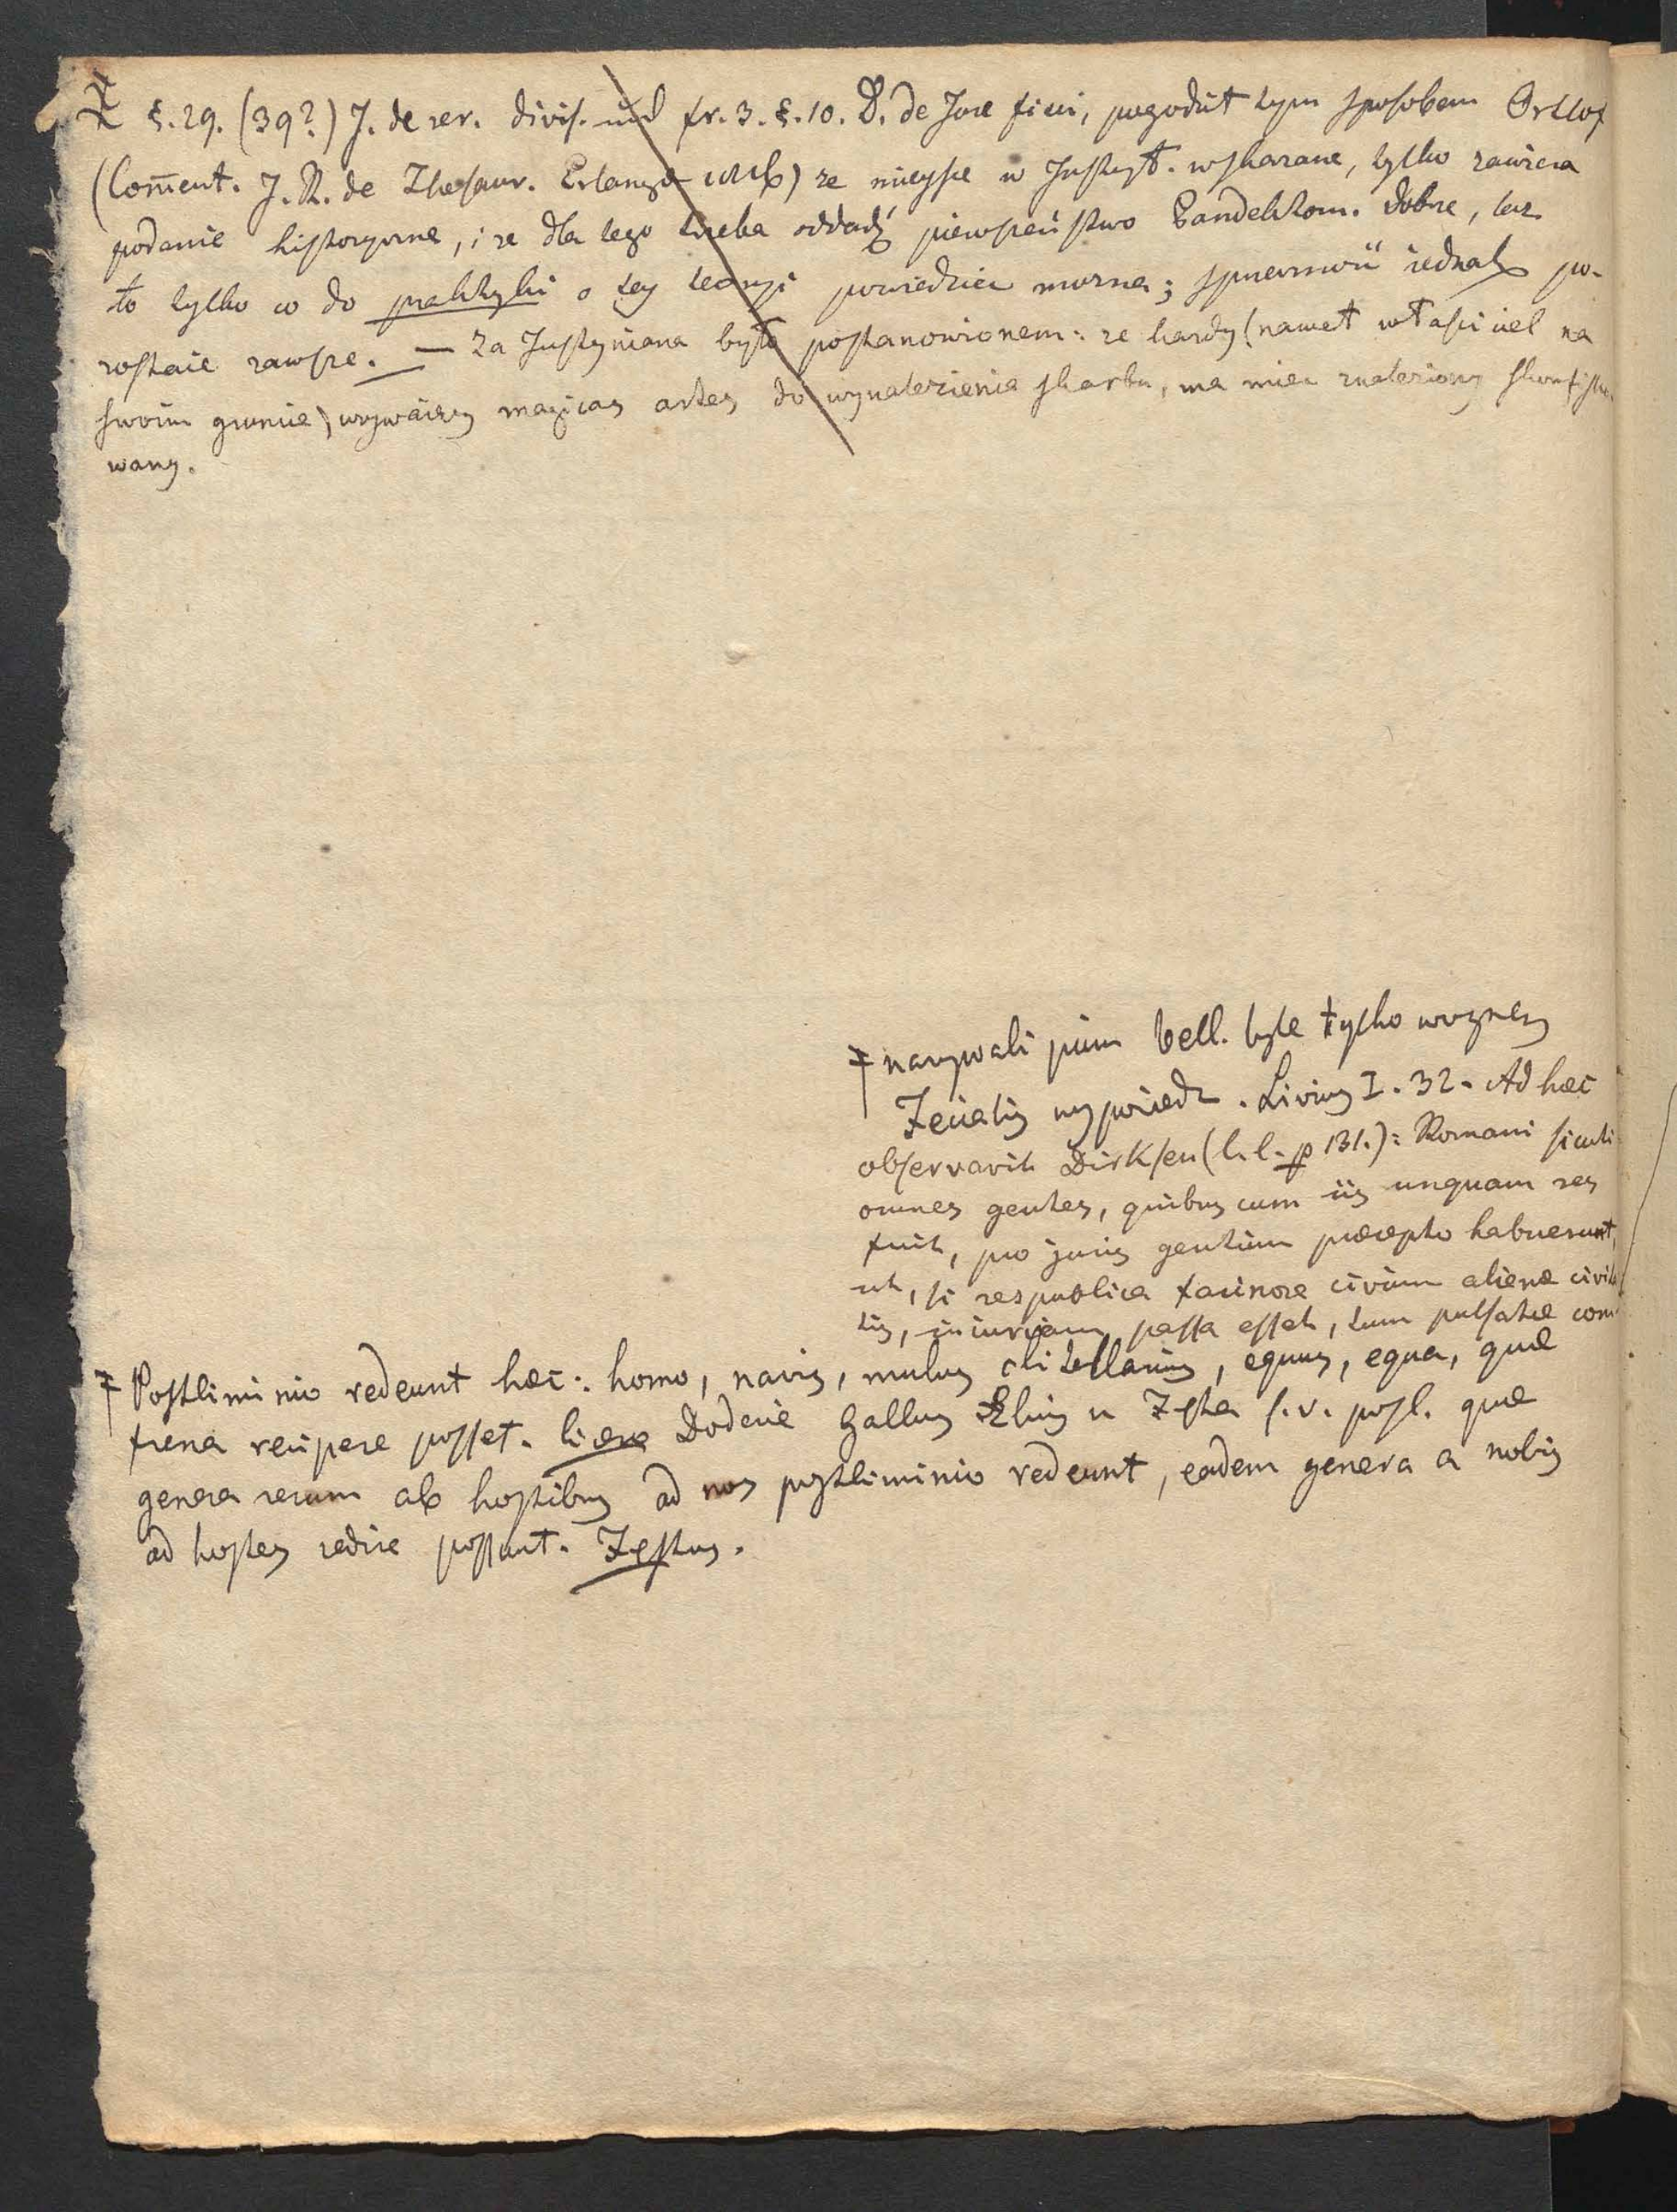 §. 29. (39?) J. de rer. divis. und fr. 3. §. 10. D. de Jure fisci, pogodził tym sposobem Ortlof
(Com̄ent. J. R. de Thesaur. Erlangæ) ze mieysce w Instyt. wskazane, tylko zawiera
podanie historyczne, i ze dla tego trzeba oddadź pierwszeństwo Pandektom. Dobrze, lecz
to tylko co do praktyki o tey teoryi powiedziec mozna; sprzeczność iednak po-
zostaie zawsze. — Za Justyniana było postanowionem: ze kazdy (nawet właściciel na
swoim gruncie) uzywaiący magicas artes do wynalezienia skarbu, ma miec znaleziony skonfisko
wany.
nazywali pium bell. byle tylko wyznes
Fecialis wypowiedz. Livius I. 32. Ad hæc
observavit Dirksen (l. l. p 131.): Romani sicuti
omnes gentes, quibus cum iis unquam res
fuit, pro juris gentium præcepto habuerunt,
ut, si respublica facinore civium alienæ civita
tis, iniuriam passa esset, tum pulsatæ com
Postliminio redeunt hæc: homo, navis, mulus clitellarius, equus, equa, quæ
frena recipere posset. Dodaie Gallus Ælius u Festa s. v. postl. quæ
genera rerum ab hostibus ad nos postliminio redeunt, eadem genera a nobis
ad hostes redire possunt. Festus.